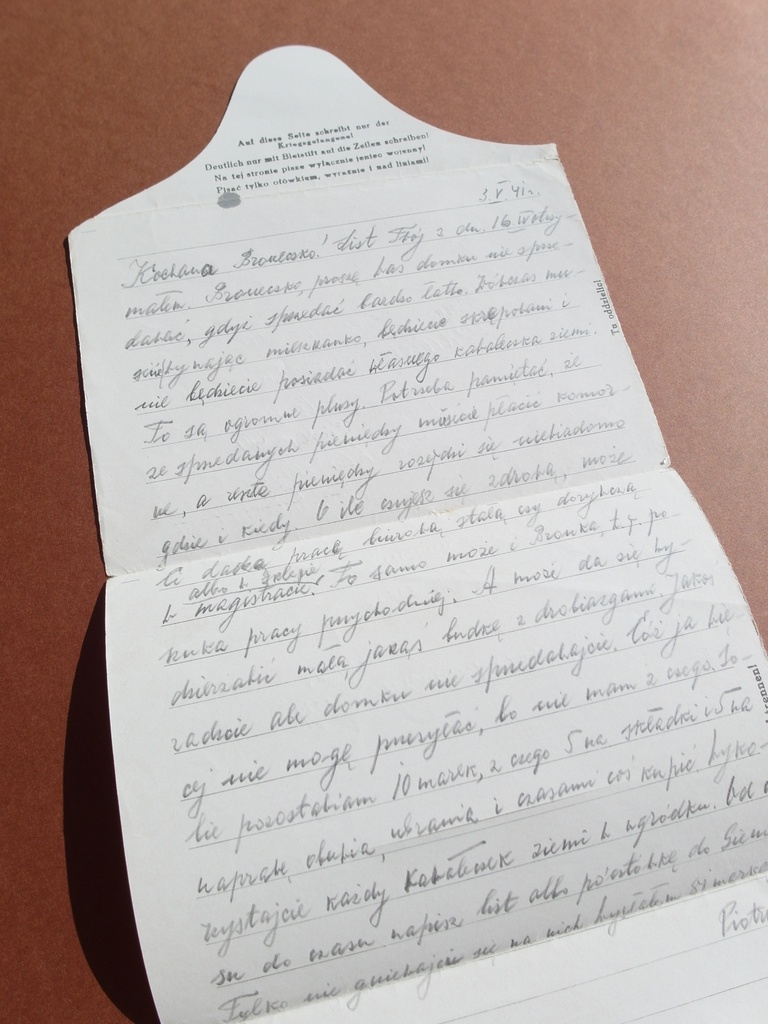 Auf diese Seite schreibt nur der
Kriegsgefangene!
Deutlich nur mit Bleistift auf die Zeilen schreiben!
Na tej stronie pisze wyłącznie jeniec wojenny!
Pisać tylko ołówkiem, wyraźnie i nad liniami!
3.V.41r.
Kochana Broneczko! List Twój z dn. 16 IV otrzy-
małem. Broneczko, proszę Was domku nie sprze-
dawać, gdyż sprzedać bardzo łatwo. Wówczas mu-
nając mieszkanko, będziecie skrępowani i
nie będziecie posiadać własnego kawałeczka ziemi.
To są ogromne plusy. Potrzeba pamiętać, że
ze sprzedanych pieniędzy musicie płacić komor-
ne, a reszta pieniędzy rozejdzi się niewiadomo
gdzie i kiedy. O ile czujesz się zdrową, może
Ci dadzą pracę biurową stałą czy dorywczą
albo w sklepie
w magistracie! To samo może i Bronka, t.j. po-
szuka pracy przychodniej. A może da się wy-
dzierżawić małą jakąś budkę z drobiazgami. Jako
radzcie ale domku nie sprzedawajcie. Cóż ja wię-
cej nie mogę przysyłać, bo nie mam z czego. So-
bie pozostawiam 10 marek, z czego 5 na składki i 5 na
naprawę obuwia, ubrania i czasami coś kupić. Wyko-
rzystajcie każdy kawałeczek ziemi w ogródku. Od cza-
su do czasu napisz list albo pocztówkę do
Tylko nie gniewajcie się na nich wysłałem 51 marek
Piotr
To oddzielić!